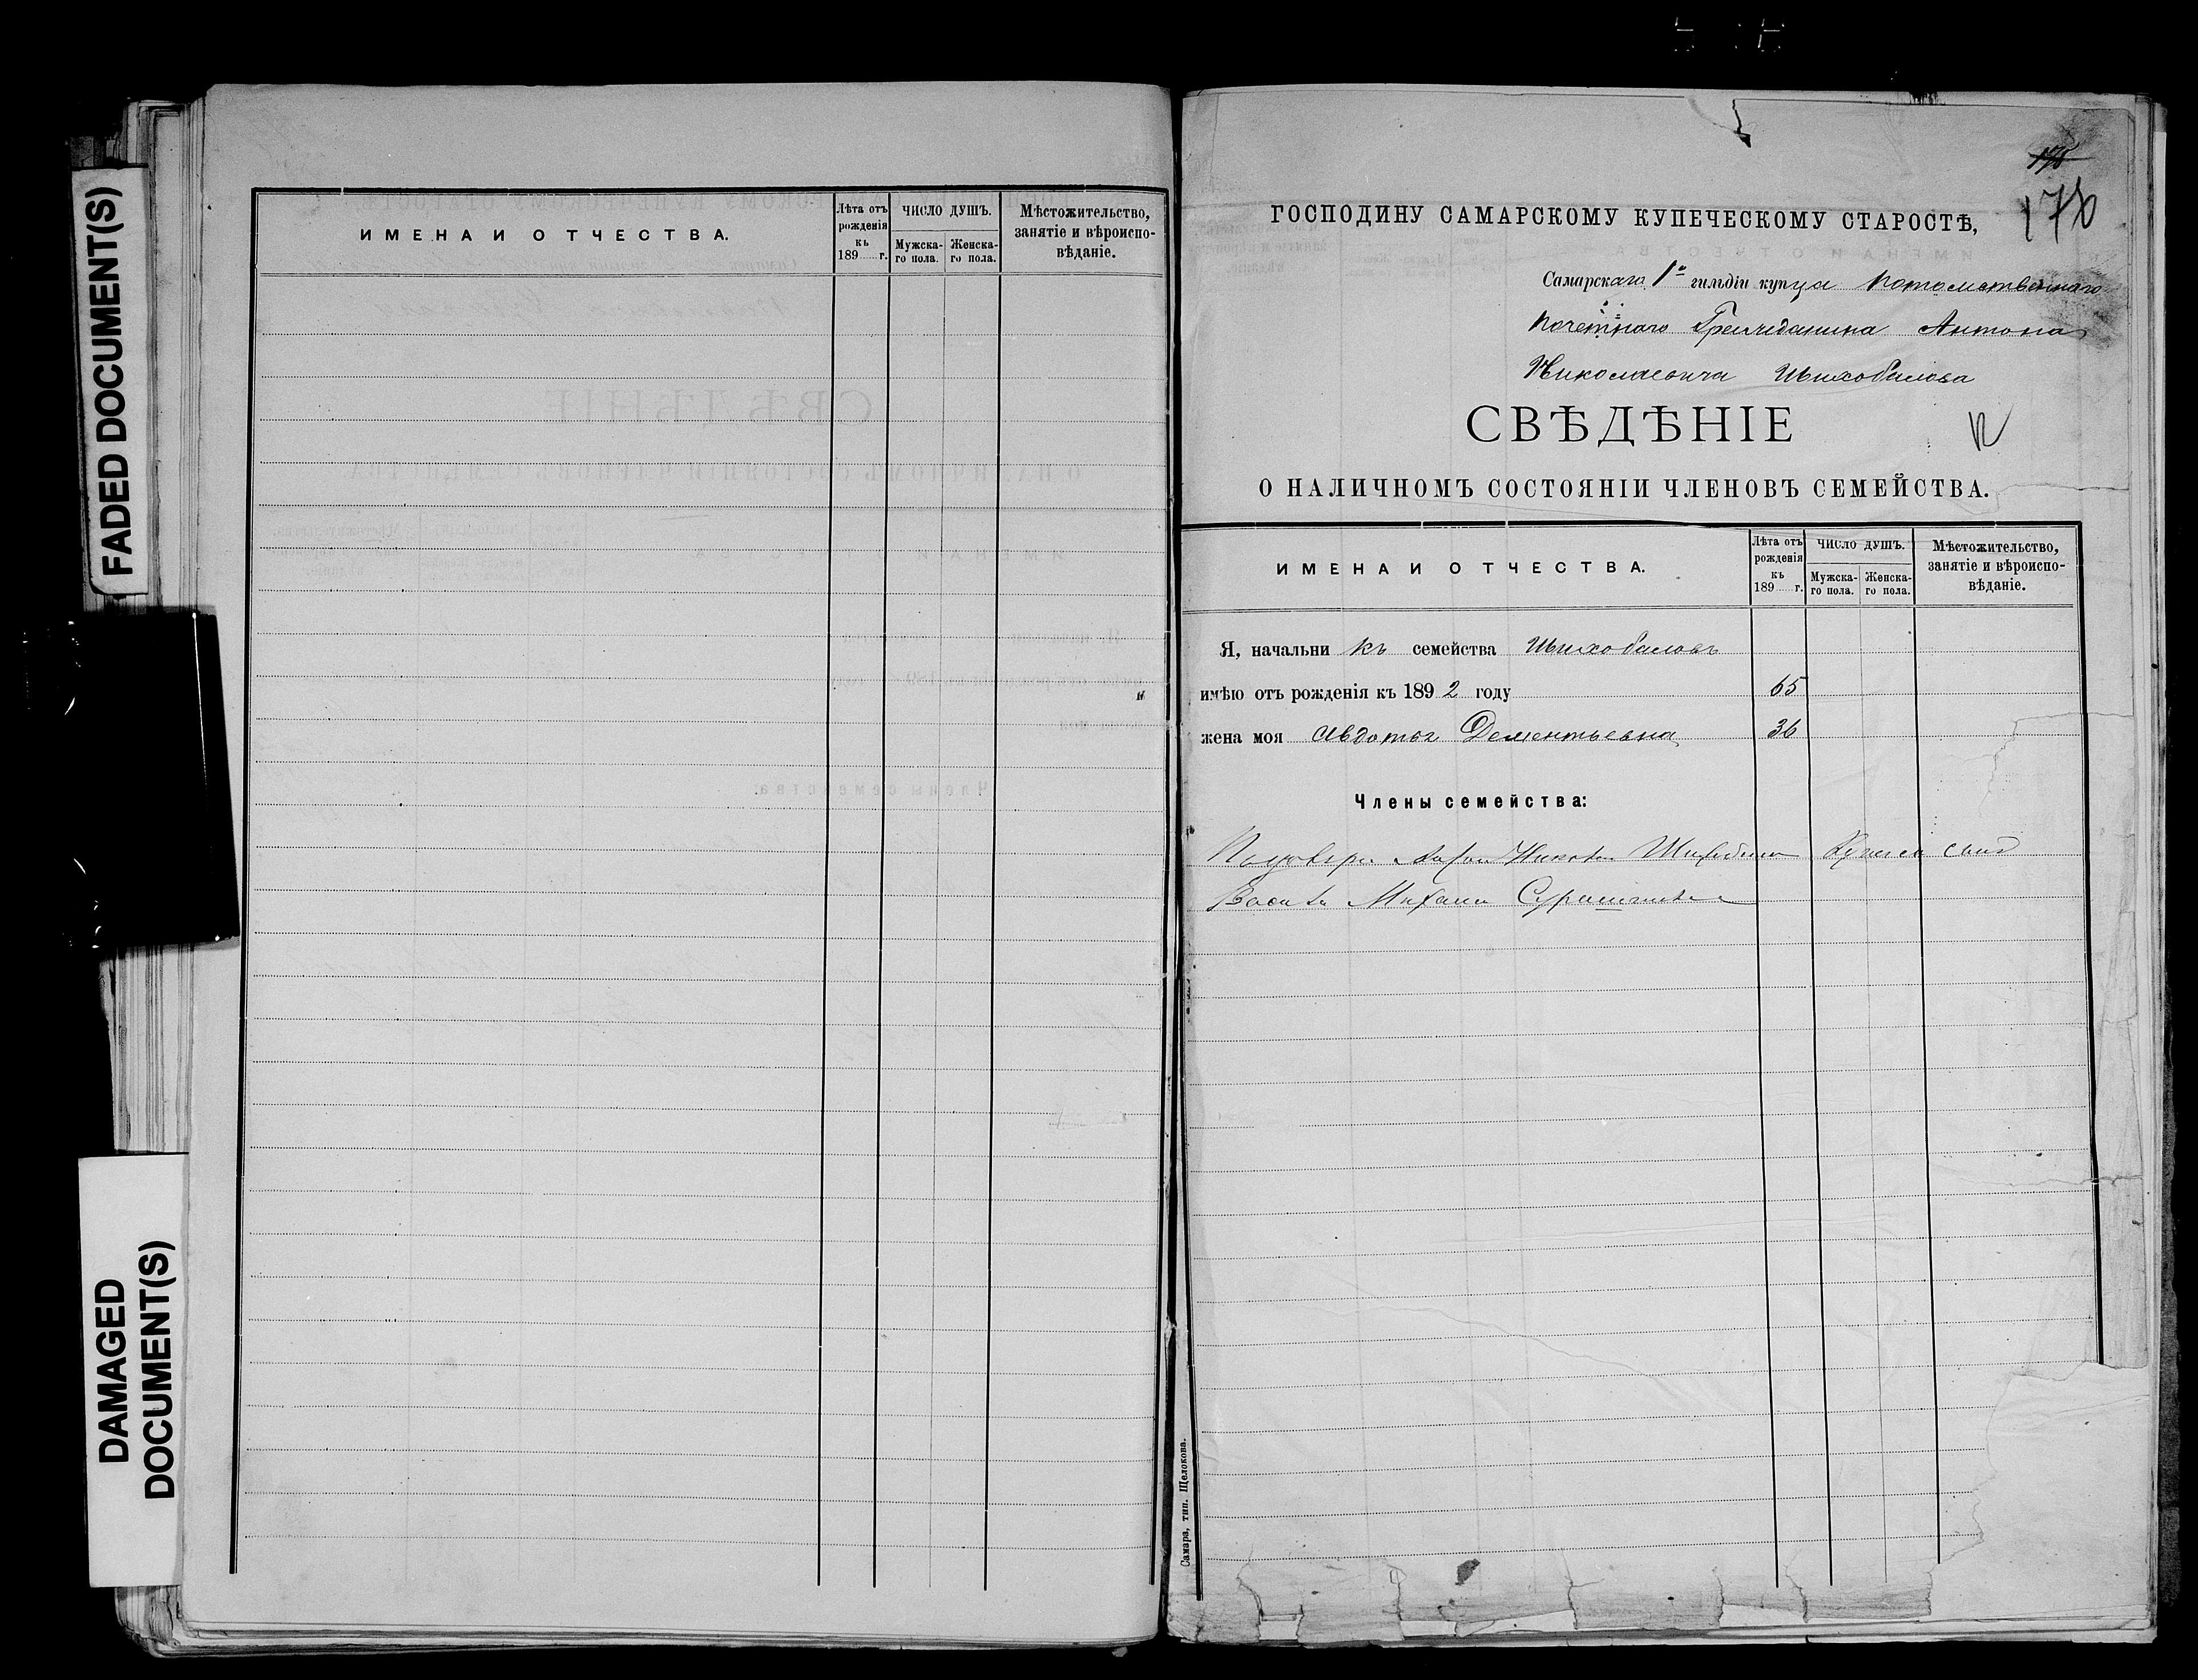 FADED DOCUMENT(S)
DAMAGED
DOCUMENT(S)
ИМЕНА И ОТЧЕСТВА.
Лѣта отъ рожденія къ 189 г.
ЧИСЛО ДУШЪ.
Мужска-го пола.
Женска-го пола.
Мѣстожительство, занятіе и вѣроиспо-вѣданіе.
175
176
ГОСПОДИНУ САМАРСКОМУ КУПЕЧЕСКОМУ СТАРОСТѢ,
Самарскаго 1й гильдіи купца потомственнаго
почетнаго Гражданина Антона
Николаевича Шихобалова
СВѢДѢНІЕ
О НАЛИЧНОМЪ СОСТОЯНІИ ЧЛЕНОВЪ СЕМЕЙСТВА.
ИМЕНА И ОТЧЕСТВА.
Лѣта отъ рожденія къ 189 г.
ЧИСЛО ДУШЪ.
Мужска-го пола.
Женска-го пола.
Мѣстожительство, занятіе и вѣроиспо-вѣданіе.
Я, начальникъ семейства Шихобаловъ
имѣю отъ рожденія къ 1892 году 65
жена моя Авдотья Дементьевна 36
Члены семейства:
Василь Михаил
Самара, тип. Щелокова.